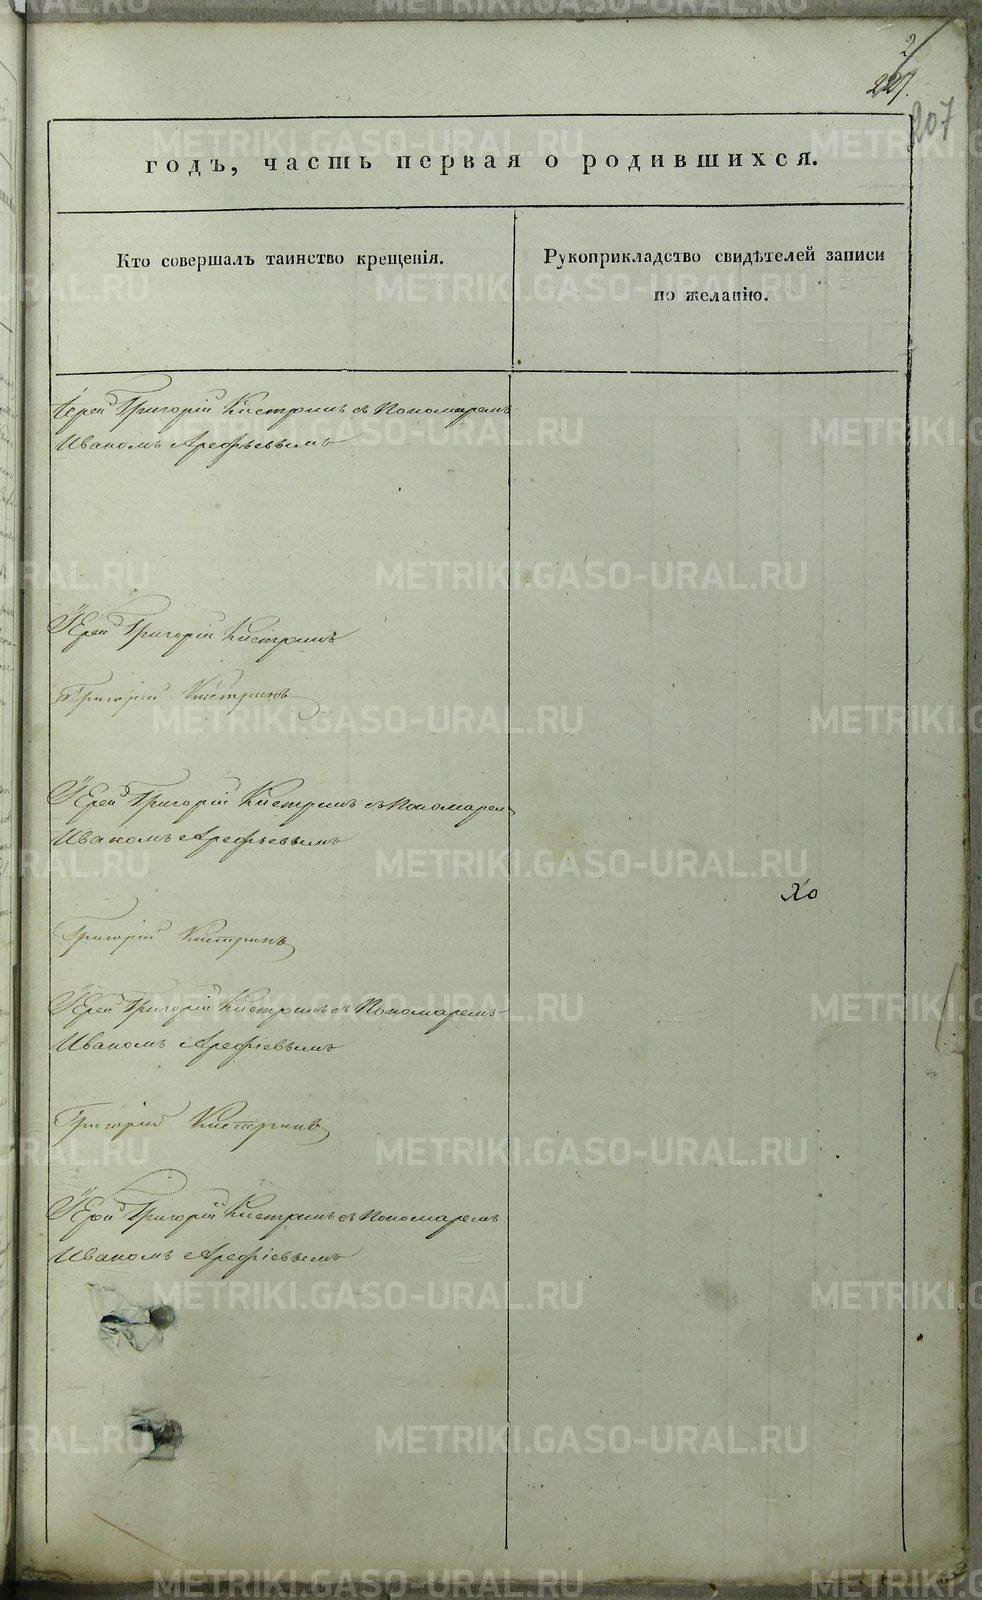 2
227.
207
годъ, часть первая о родившихся.
Кто совершалъ таинство крещенія.
Рукоприкладство свидѣтелей записи
по желанію.
Іерей Григорій Кистринъ съ Пономаремъ
Иваномъ Арефьевымъ
Іерей Григорій Кистринъ
Григорій Кистринъ
Іерей Григорій Кистринъ съ Пономарем
Иваномъ Арефьевымъ
Григорій Кистринъ
Іерей Григорій Кистринъ съ Пономаремъ
Иваномъ Арефіевымъ
Григорій Кистринъ
Іерей Григорій Кистринъ съ Пономаремъ
Иваномъ Арефіевымъ
METRIKI.GASO-URAL.RU